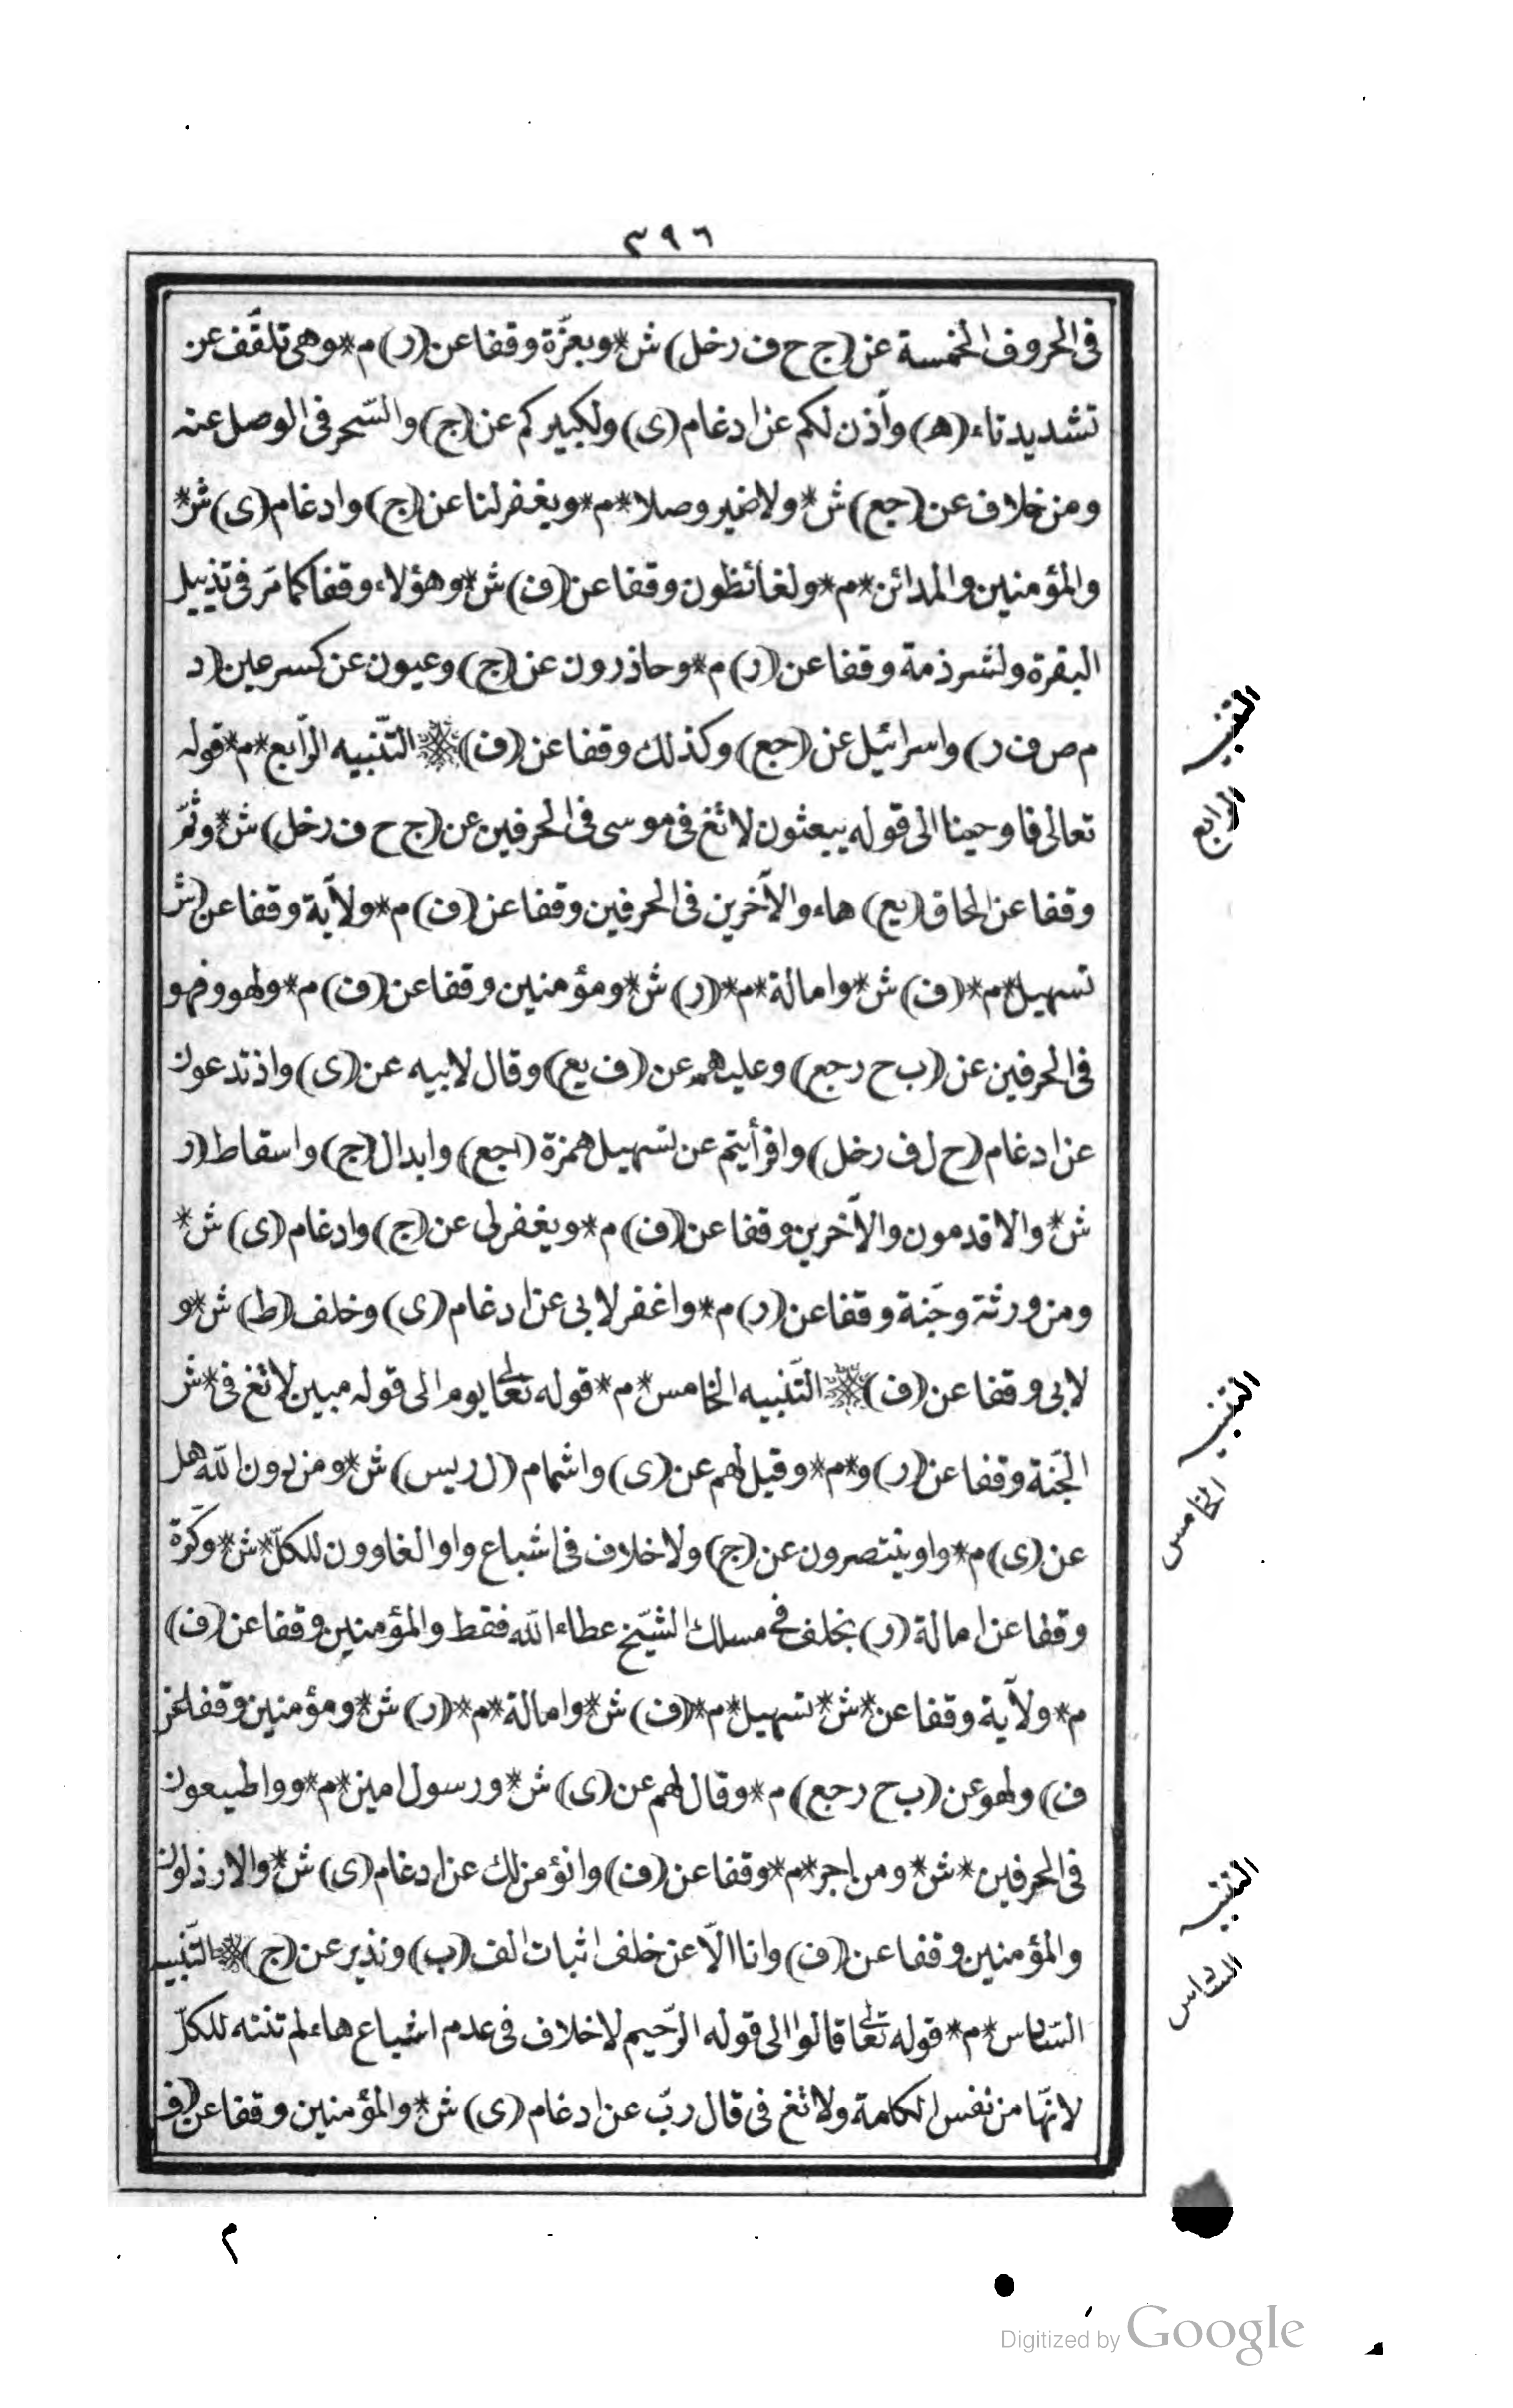 ٣٩٦
فى الحروف الخمسة عن (ج ح ف رخل) ش* وبعزّة وقفا عن (ر) م* وهى تلقّف عن
تشديد تاء (ه) وآذن لكم عن ادغام (ى) ولكبيركم عن (ج) والسّحر فى الوصل عنه
ومن خلاف عن (جع) ش* ولا ضير وصلا* م* ويغفر لنا عن (ج) وادغام (ى) ش*
والمؤمنين والمدائن* م* ولغائظون وقفا عن (ف) ش* وهؤلاء وقفا كما مرّ فى تذييل
البقرة ولشرذمة وقفا عن (ر) م* وحاذرون عن (ج) وعيون عن كسر عين (د
م ص ف ر) واسرائيل عن (جع) وكذلك وقفا عن (ف) التّنبيه الرّابع* م* قوله
تعالى فاوحينا الى قوله يبعثون لا تغ فى موسى فى الحرفين عن (ج ح ف رخل) ش* وثمّ
وقفا عن الحاق (يع) هاء والآخرين فى الحرفين وقفا عن (ف) م* ولآية وقفا عن (ش
تسهيل* م* (ف) ش* وامالة* م* (ر) ش* ومؤمنين وقفا عن (ف) م* ولهو وفهو
فى الحرفين عن (ب ح رجع) وعليهم عن (ف يع) وقال لابيه عن (ى) واذ تدعون
عن ادغام (ح ل ف رخل) وافرأيتم عن تسهيل همزة (اجع) وابدال (ج) واسقاط (ر
ش* والاقدمون والآخرين وقفا عن (ف) م* ويغفر لى عن (ج) وادغام (ى) ش*
ومن ورثة وجنّة وقفا عن (ر) م* واغفر لابى عن ادغام (ى) وخلف (ط) ش* و
لابى وقفا عن (ف) التّنبيه الخامس* م* قوله تعالى يوم الى قوله مبين لا تغ فى* ش
الجنّة وقفا عن (ر) و* م* وقيل لهم عن (ى) واشمام (ل ريس) ش* ومن دون الله هل
عن (ى) م* واو ينتصرون عن (ج) ولا خلاف فى اشباع واو الغاوون للكلّ* ش* وكرّة
وقفا عن امالة (ر) بخلف فى مسلك الشيّخ عطاء الله فقط والمؤمنين وقفا عن (ف)
م* ولآية وقفا عن* ش* تسهيل* م* (ف) ش* وامالة* م* (ر) ش* ومؤمنين وقفا عن
ف) ولهو عن (ب ح رجع) م* وقال لهم عن (ى) ش* ورسول امين* م* وواطيعون
فى الحرفين* ش* ومن اجر* م* وقفا عن (ف) وانؤمن لك عن ادغام (ى) ش* والارذلون
والمؤمنين وقفا عن (ف) وانا الّا عن خلف اثبات الف (ب) ونذير عن (ج) التّنبيه
السّادس* م* قوله تعالى قالوا الى قوله الرّحيم لا خلاف فى عدم اشباع هاء لم تنته للكلّ
لانّها من نفس الكلمة ولا تغ فى قال ربّ عن ادغام (ى) ش* والمؤمنين وقفا عن (ف
التنبيه
الرابع
التنبيه
الخامس
التنبيه
السادس
م
Digitized by Google